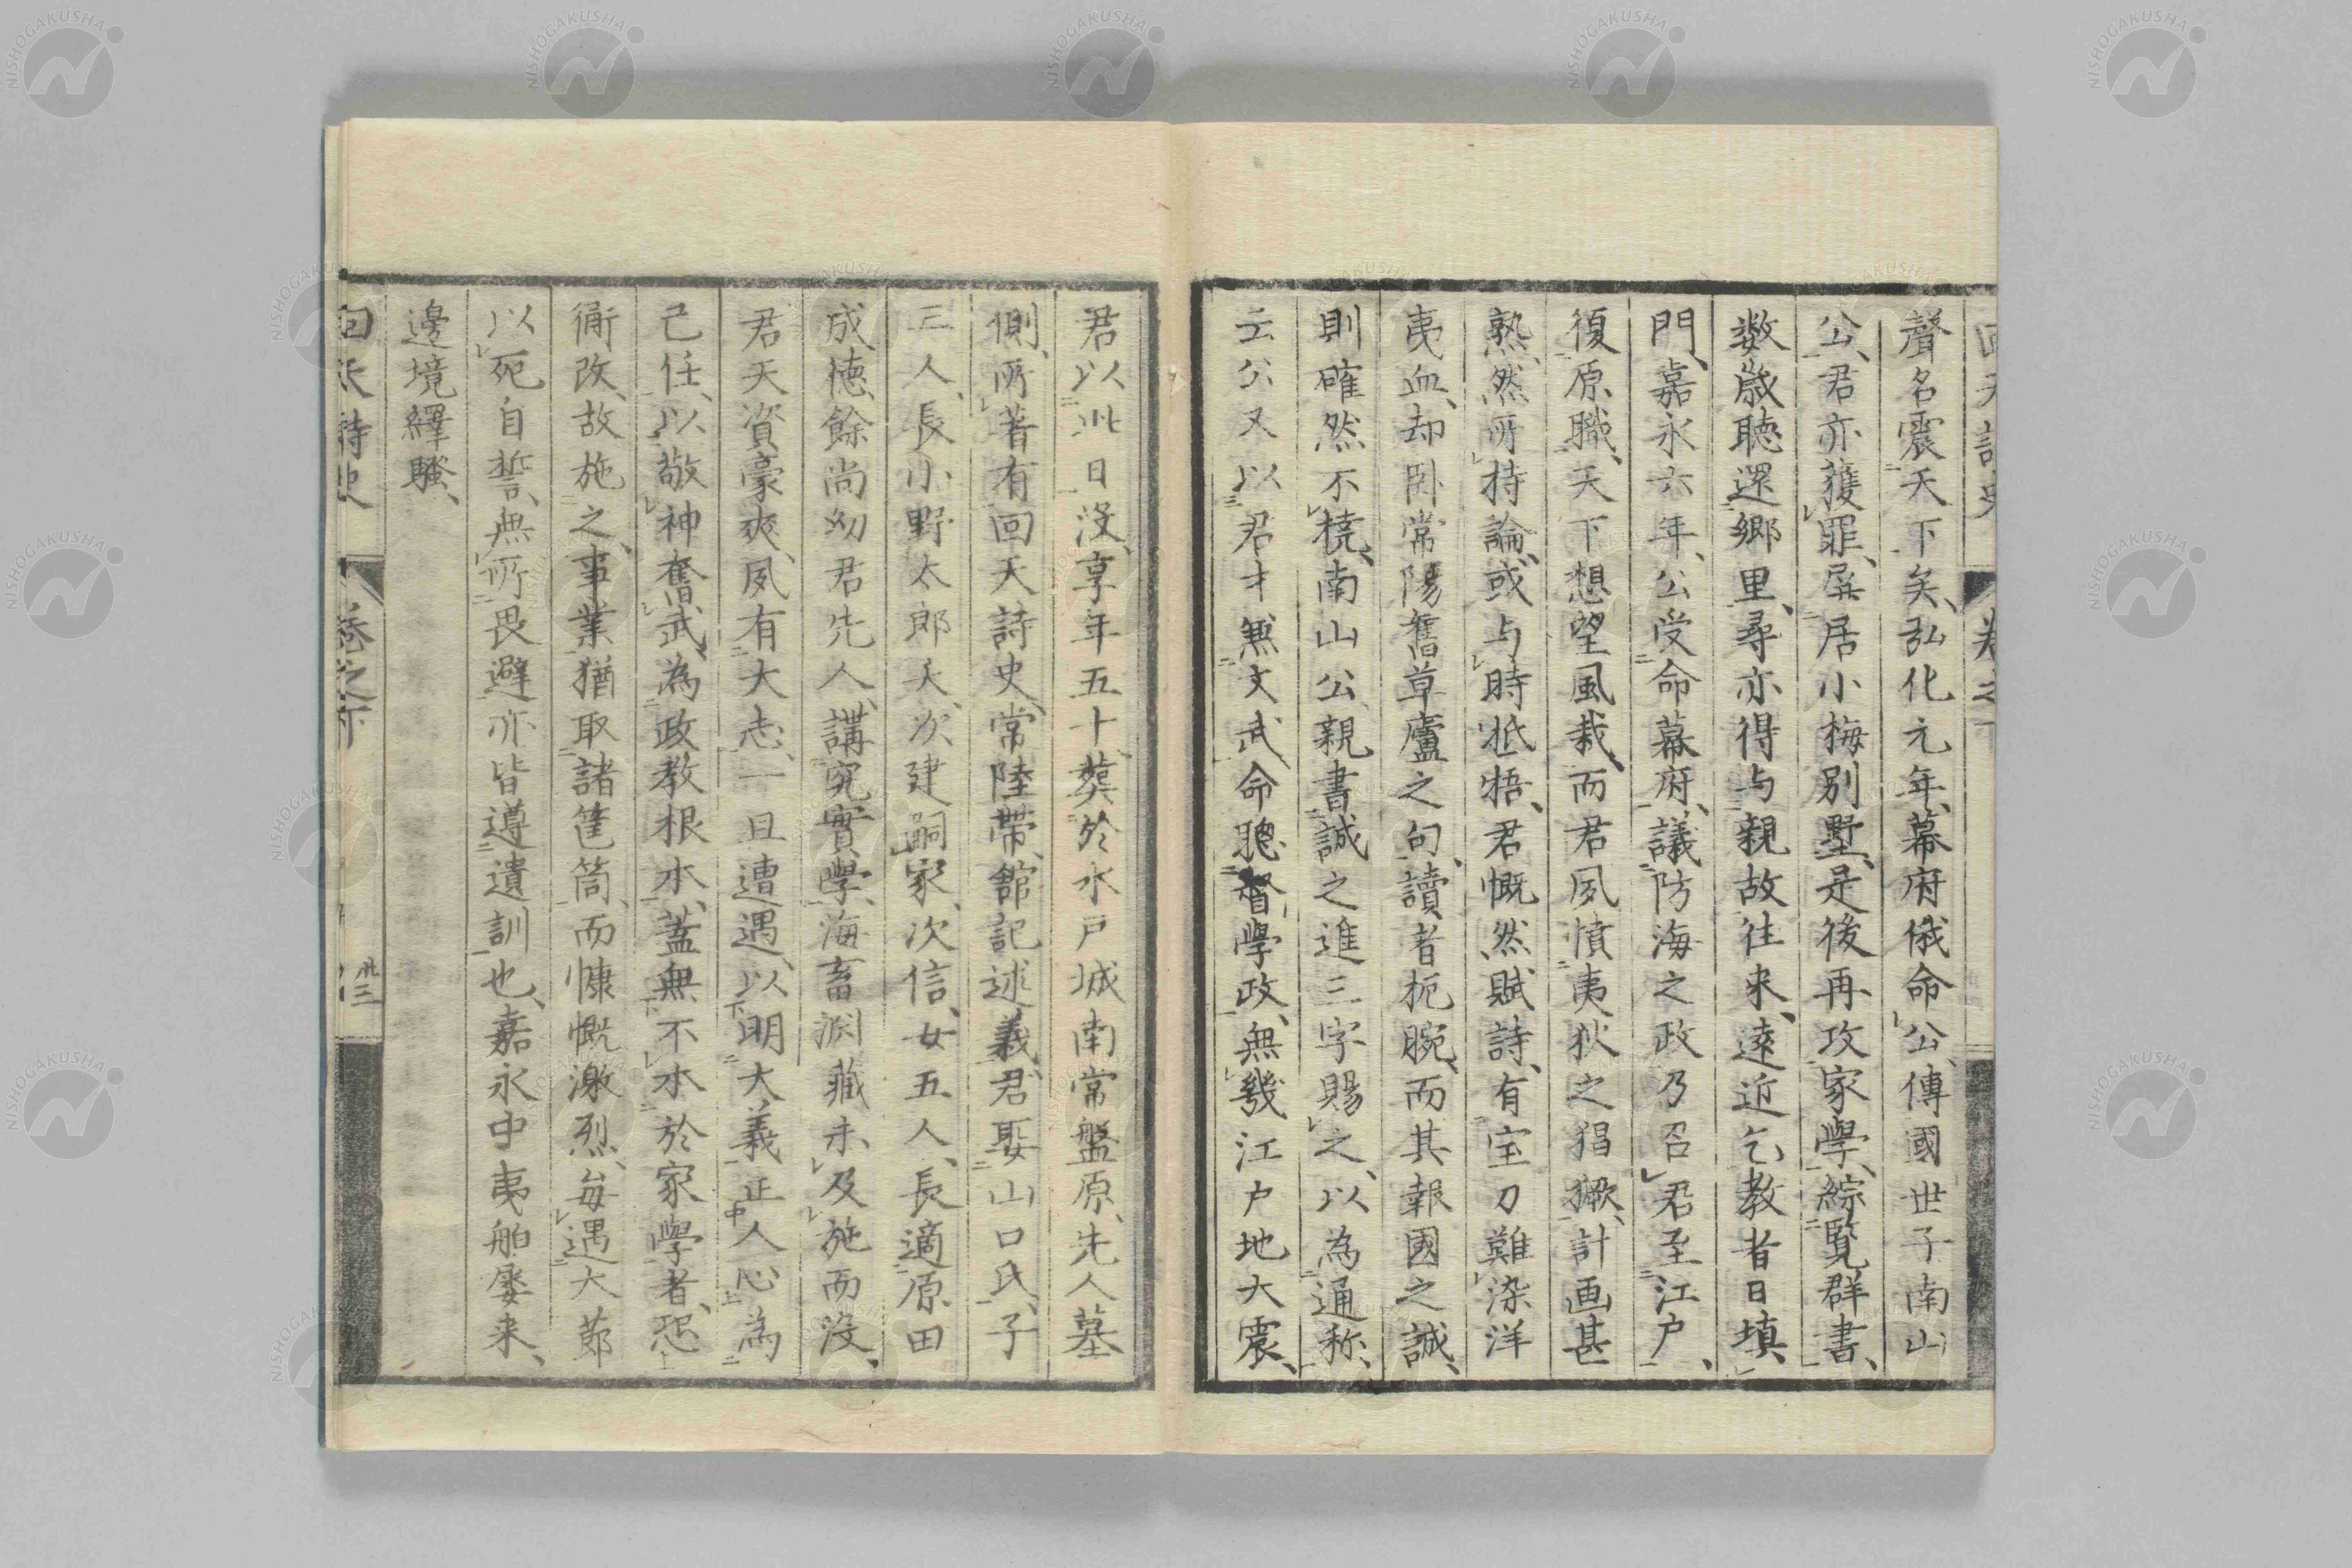 聲名震天下矣、弘化元年、幕府俄命公、傳國世子南山
公、君亦獲罪、屏居小梅別墅、是後再攻家學、綜覽群書、
数歳聴還郷里、尋亦得与親故往来、遠近乞教者日填
門、嘉永六年、公受命幕府、議防海之政乃召君至江戸、
復原職、天下想望風裁、而君夙憤夷狄之猖獗、計画甚
熟、然所持論、或与時牴牾、君慨然賦詩、有宝刀難染洋
夷血、却卧常陽舊草廬之句、讀者扼腕、而其報國之誠、
則確然不撓、南山公親書誠之進三字賜之、以為通称、
云公又以君才無文武命聰督學政、無幾江戸地大震、
君以此日没、享年五十、葬於水戸城南常盤原、先人墓
側、所著有回天詩史、常陸帯、館記述義、君娶山口氏、子
三人、長小野太郎夭、次建嗣家、次信、女五人、長適原田
成徳、餘尚幼君先人、講究實學、海畜淵蔵未及施而没、
君天資豪爽、夙有大志、一旦遭遇、以明大義正人心、為
己任、以敬神奮武、為政教根本、蓋無不本於家學者、恐
衕改、故施之、事業猶取諸筐筒、而慷慨激烈、毎遇大節
以死自誓、無所畏避亦皆遵遺訓也、嘉永中夷舶屡来、
邊境繹騒、
回天詩史 巻之下 卅三